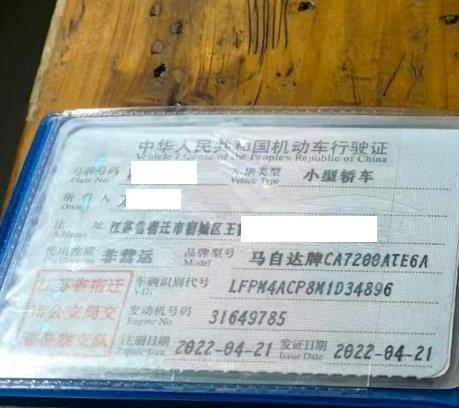 中华人民共和国机动车行驶证
Vehicle License of the People's Republic of China
号牌号码 车辆类型 小型轿车
Plate No. Vehicle Type
所有人
Owner
住址 江苏省宿迁市宿城区王
Address
使用性质 非营运 品牌型号 马自达牌CA7200ATE6A
Model
江苏省宿迁 车辆识别代号 LFPM4ACP8M1D34896
VIN
市公安局交 发动机号码 31649785
Engine No.
通警察支队 注册日期 2022-04-21 发证日期 2022-04-21
Register Date Issue Date